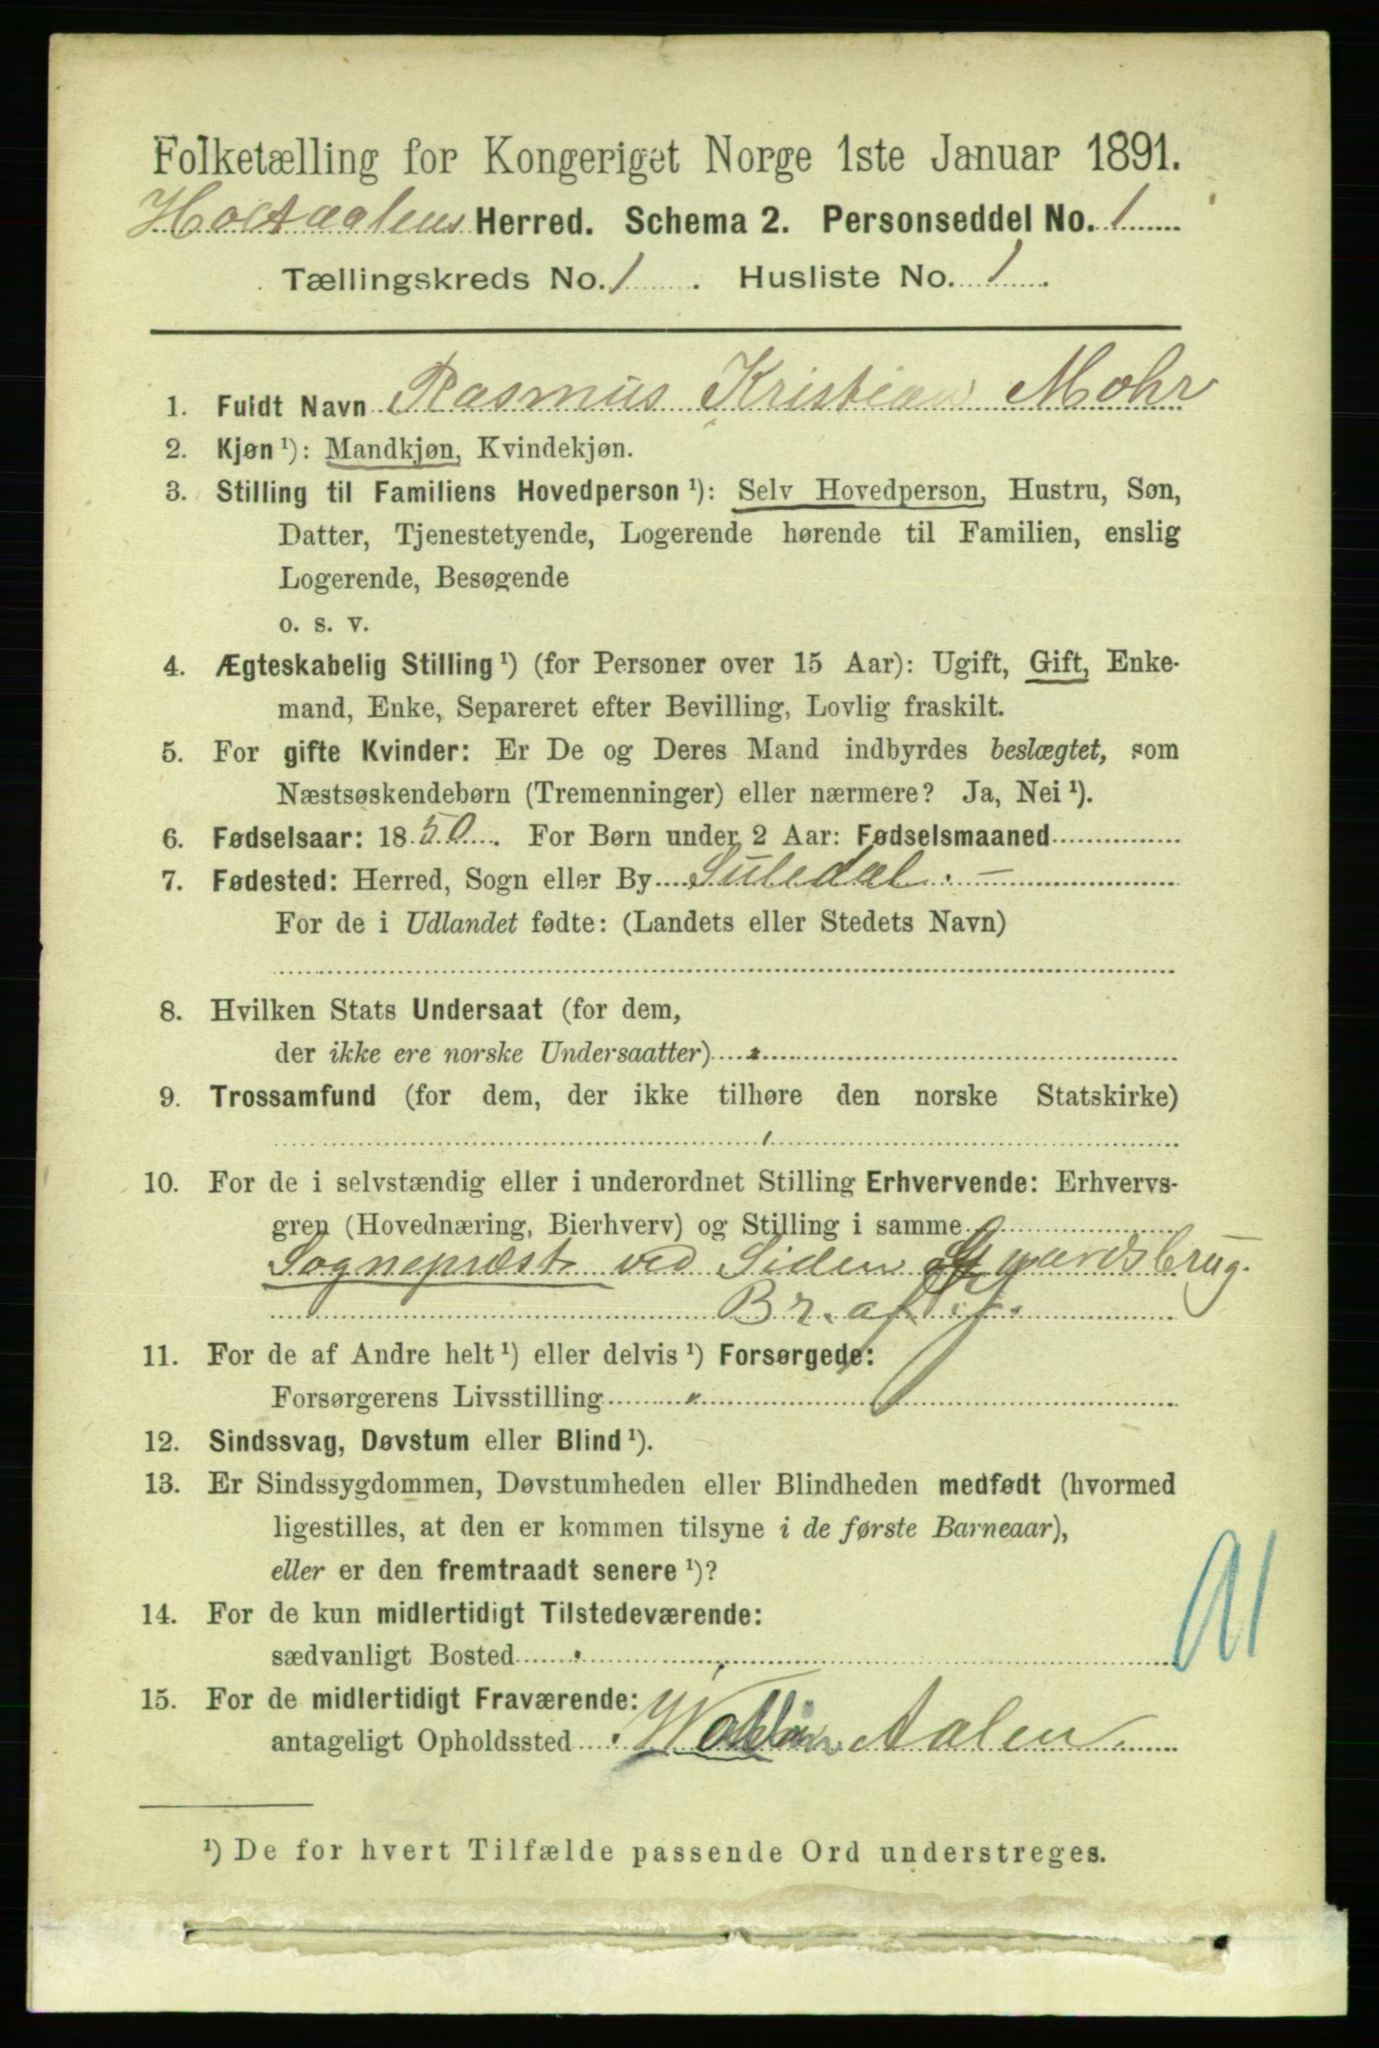 Folketælling for Kongeriget Norge 1ste Januar 1891.
Holtaalens Herred. Schema 2. Personseddel No. 1
Tællingskreds No. 1. Husliste No. 1.
1. Fuldt Navn Rasmus Kristian Mohr
2. Kjøn ¹): Mandkjøn, Kvindekjøn.
3. Stilling til Familiens Hovedperson ¹): Selv Hovedperson, Hustru, Søn,
Datter, Tjenestetyende, Logerende hørende til Familien, enslig
Logerende, Besøgende
o. s. v.
4. Ægteskabelig Stilling ¹) (for Personer over 15 Aar): Ugift, Gift, Enke-
mand, Enke, Separeret efter Bevilling, Lovlig fraskilt.
5. For gifte Kvinder: Er De og Deres Mand indbyrdes beslægtet, som
Næstsøskendebørn (Tremenninger) eller nærmere? Ja, Nei ¹).
6. Fødselsaar: 1850. For Børn under 2 Aar: Fødselsmaaned
7. Fødested: Herred, Sogn eller By Suledal. —
For de i Udlandet fødte: (Landets eller Stedets Navn)
8. Hvilken Stats Undersaat (for dem,
der ikke ere norske Undersaatter)
9. Trossamfund (for dem, der ikke tilhøre den norske Statskirke)
10. For de i selvstændig eller i underordnet Stilling Erhvervende: Erhvervs-
gren (Hovednæring, Bierhverv) og Stilling i samme
Sogneprest ved Siden Gaardsbrug.
Br. af
11. For de af Andre helt ¹) eller delvis ¹) Forsørgede:
Forsørgerens Livsstilling
12. Sindssvag, Døvstum eller Blind ¹).
13. Er Sindssygdommen, Døvstumheden eller Blindheden medfødt (hvormed
ligestilles, at den er kommen tilsyne i de første Barneaar),
eller er den fremtraadt senere ¹)?
14. For de kun midlertidigt Tilstedeværende:
sædvanligt Bosted
15. For de midlertidigt Fraværende:
antageligt Opholdssted Aalen
¹) De for hvert Tilfælde passende Ord understreges.